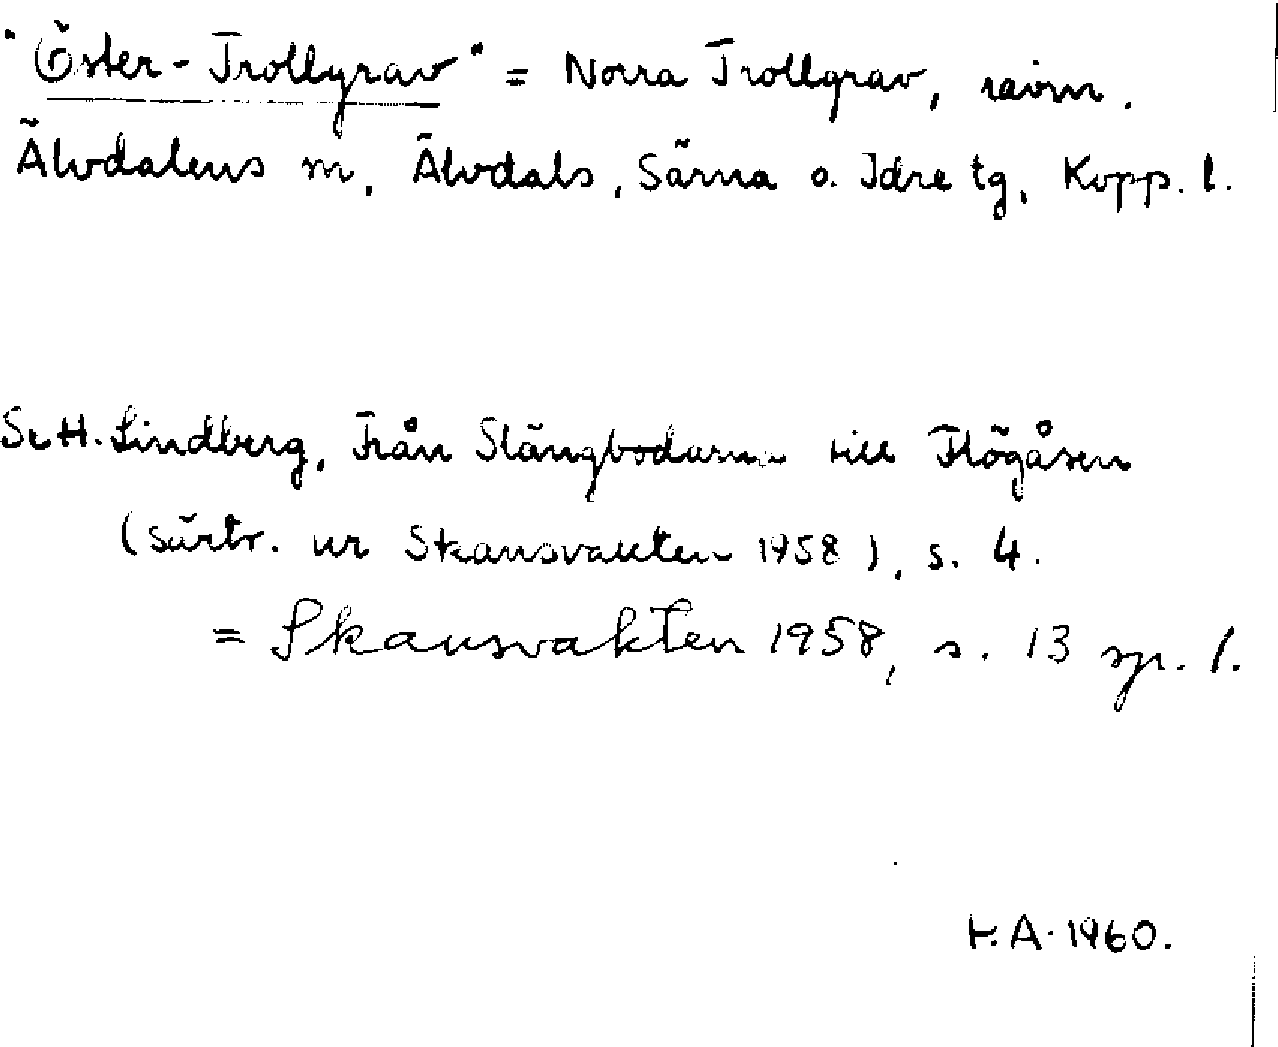 "Öster-Trollgrav" = Norra Trollgrav, ravin.
Älvdalens m, Älvdals, Särna o. Idre tg, Kopp. l.
Se H. Lindberg, Från Stängbodarna till Flögåsen
(särtr. ur Skansvakten 1958), s. 4.
= Skansvakten 1958, s. 13 sp. 1.
A. 1960.